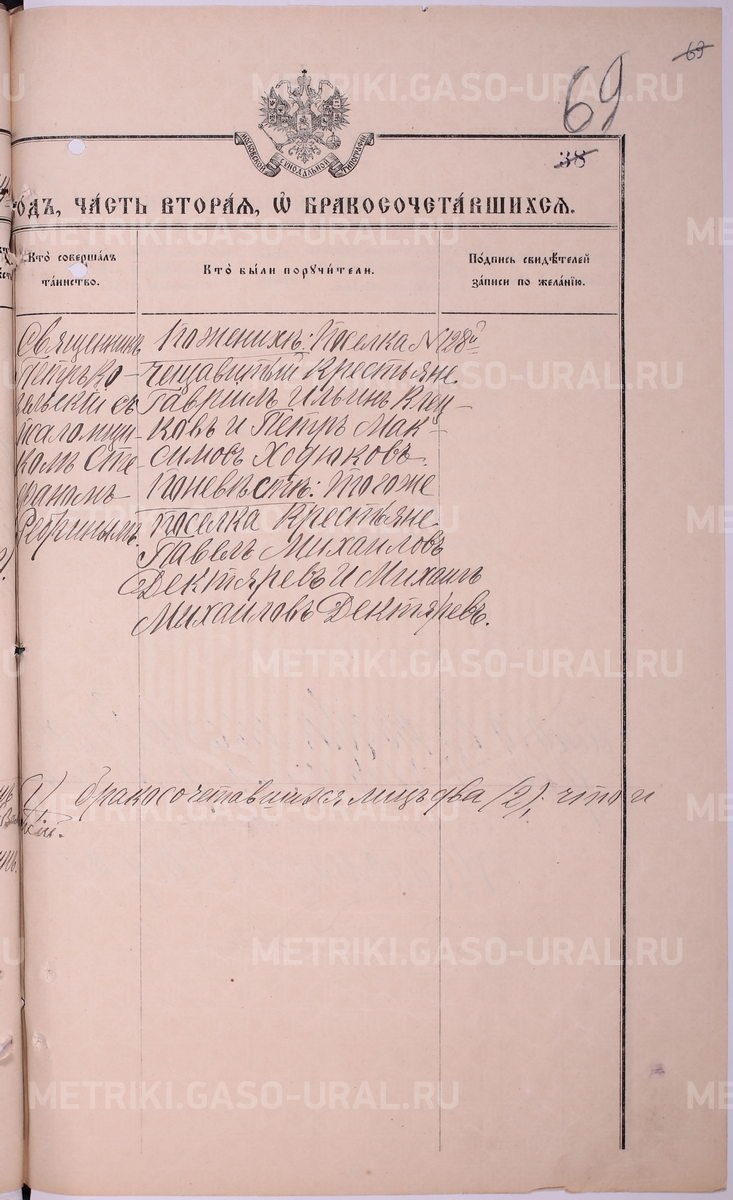 69
69
38
МОСКОВСКОЙ СѴНОДАЛЬНОЙ ТИПОГРАФІИ
ОДЪ, ЧАСТЬ ВТОРАЯ, Ѡ БРАКОСОЧЕТАВШИХСЯ.
Кто совершалъ таинство.
Кто были поручители.
Подпись свидѣтелей записи по желанію.
Священникъ
Петръ Ко-
вельскій съ
псаломщи-
комъ Сте-
фаномъ
По женихѣ: Поселка №128й
Чешавитый крестьяне
Гавріилъ Ильинъ
ковъ и Петръ Мак-
симовъ Ходюковъ.
По невѣстѣ: того же
поселка крестьяне
Павелъ Михаиловъ
Дектяревъ и Михаилъ
Михаиловъ Дектяревъ.
бракосочетавшихся лицъ два (2), что и
METRIKI.GASO-URAL.RU